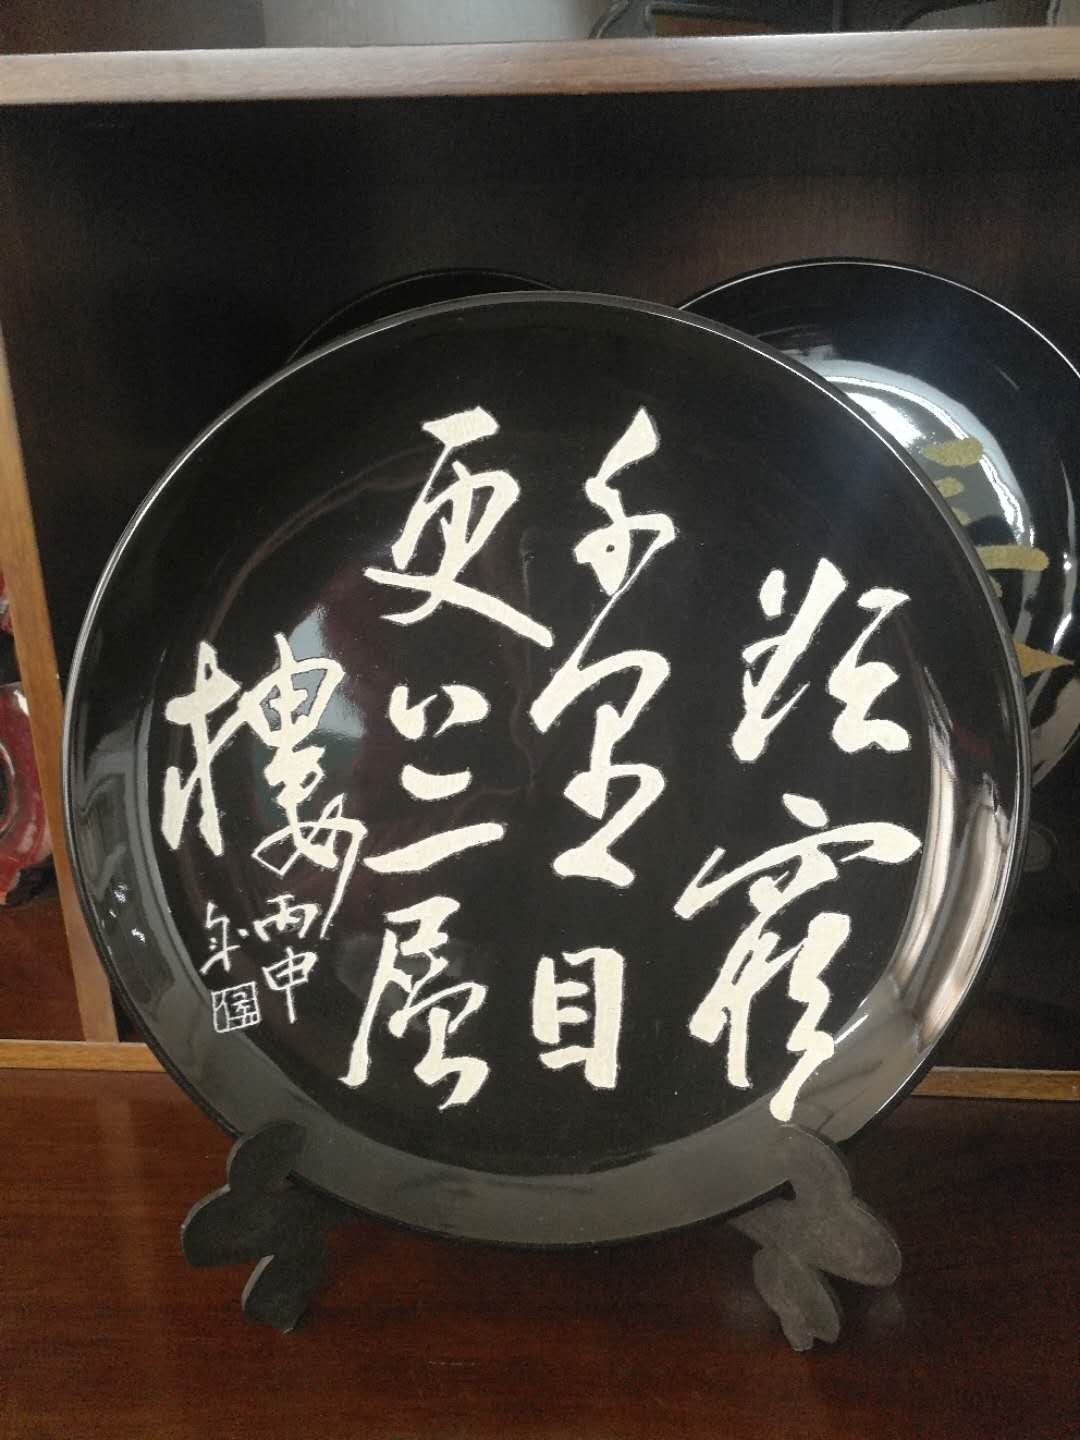 欲窮
千里目
更上一層
樓
丙申
年